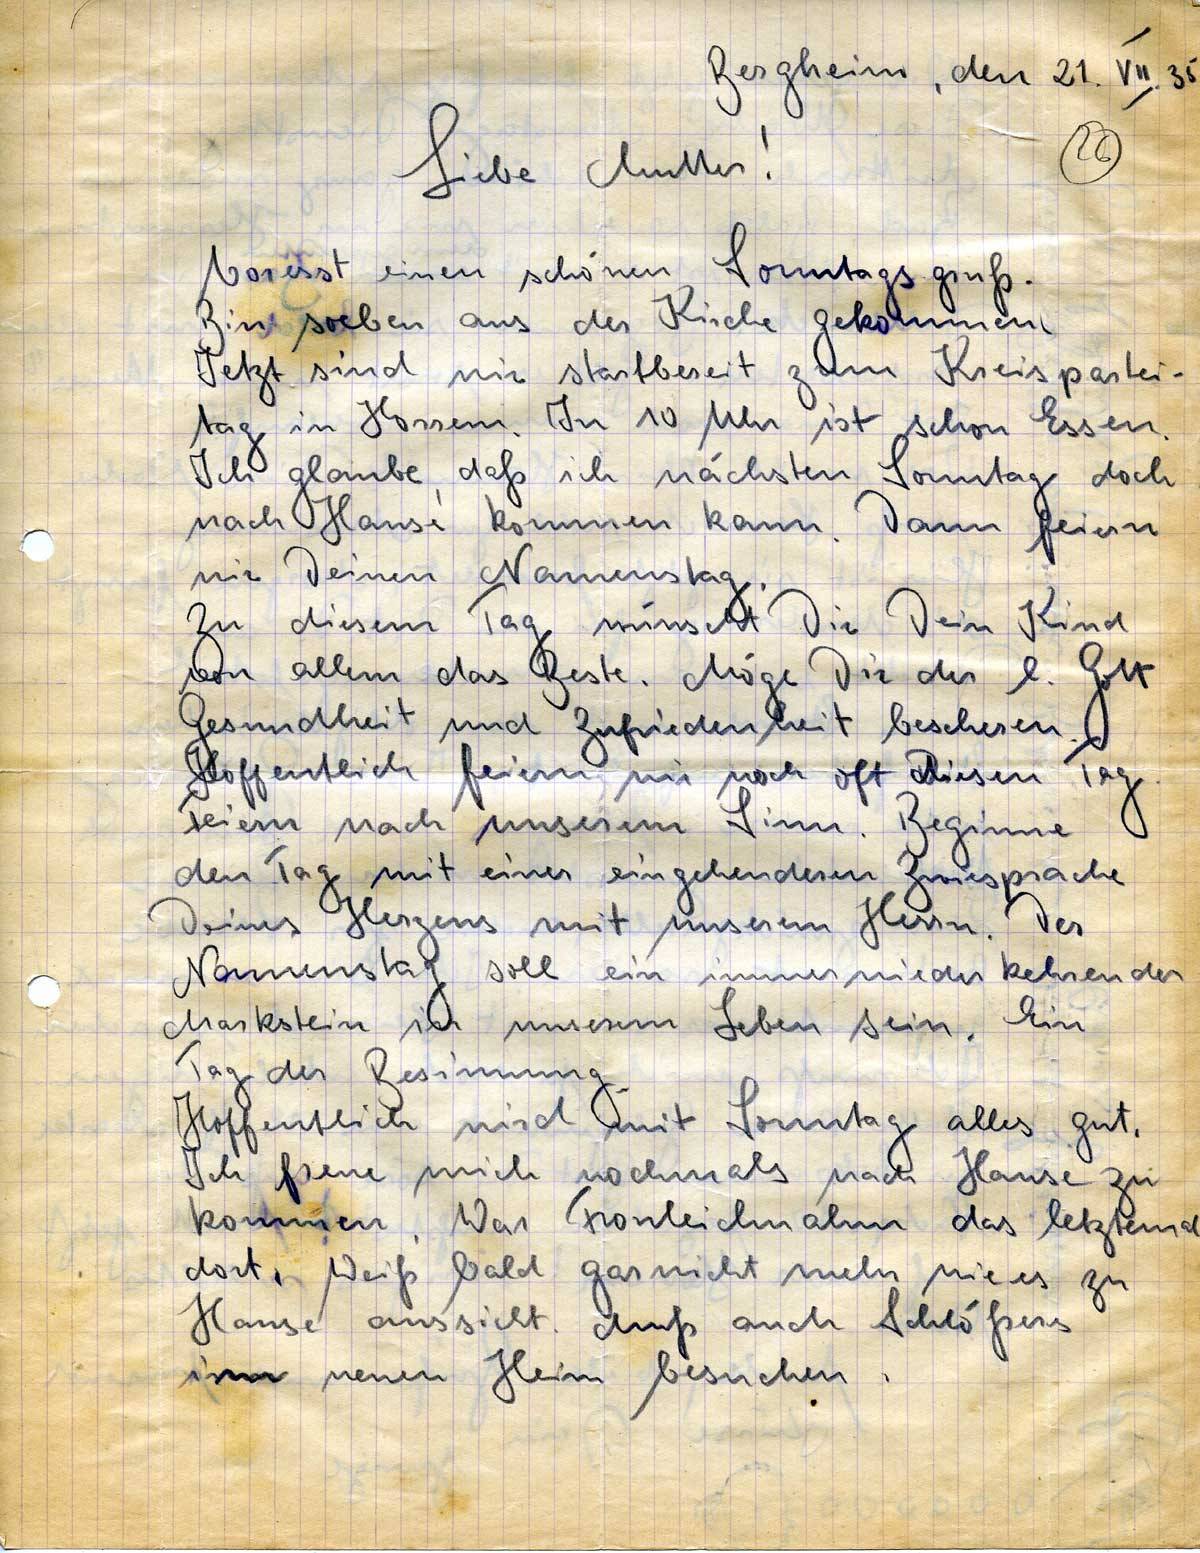 Bergheim, den 21. VII. 35
26
Liebe Mutter!
Vorerst einen schönen Sonntagsgruß.
Bin soeben aus der Kirche gekommen.
Jetzt sind wir startbereit zum Kreispartei-
tag in Horrem. Um 10 Uhr ist schon Essen.
Ich glaube, daß ich nächsten Sonntag doch
nach Hause kommen kann. Dann feiern
wir Deinen Namenstag.
Zu diesem Tag wünscht Dir Dein Kind
von allem das Beste. Möge Dir der l. Gott
Gesundheit und Zufriedenheit bescheren.
Hoffentlich feiern wir noch oft diesen Tag.
Feiern nach unserem Sinn. Beginne
den Tag mit einer eingehenderen Zwiesprache
Deines Herzens mit unserem Herrn. Der
Namenstag soll ein immerwiederkehrender
Markstein in unserem Leben sein. Ein
Tag der Besinnung.
Hoffentlich wird mit Sonntag alles gut.
Ich freue mich nochmals nach Hause zu
kommen. War Fronleichnahm das letztemal
dort. Weiß bald garnicht mehr wie es zu
Hause aussieht. Muß auch Schlößers
im neuen Heim besuchen.